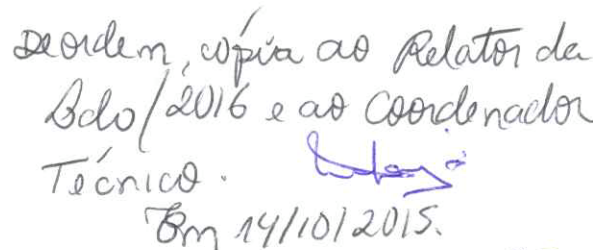 De ordem, cópia ao Relator da
Ldo/2016 e ao Coordenador
Técnico.
Em 14/10/2015.